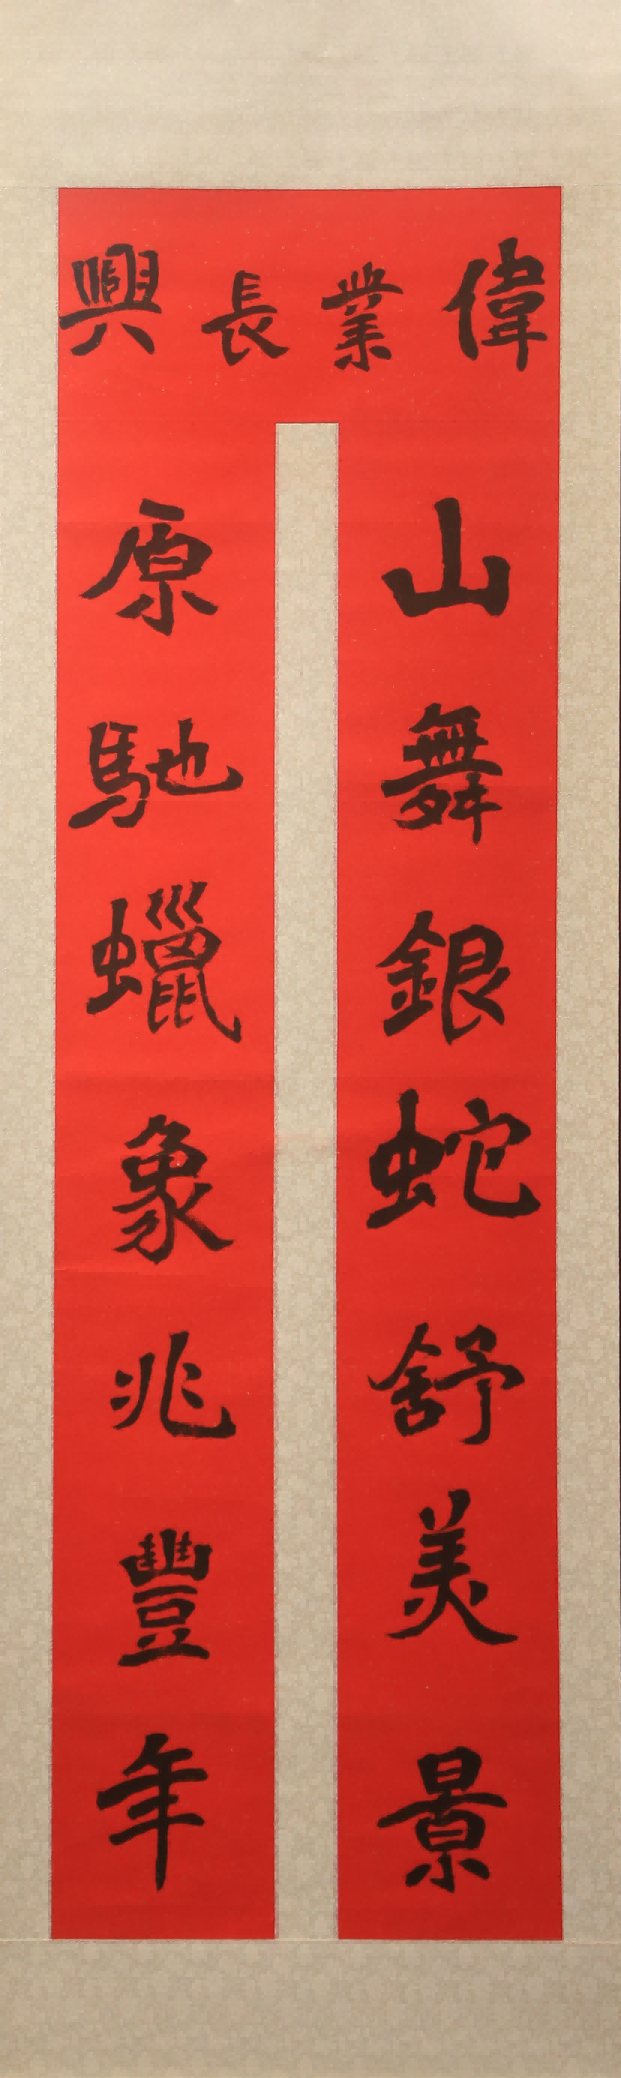 偉業長興
山舞銀蛇舒美景
原馳蠟象兆豐年